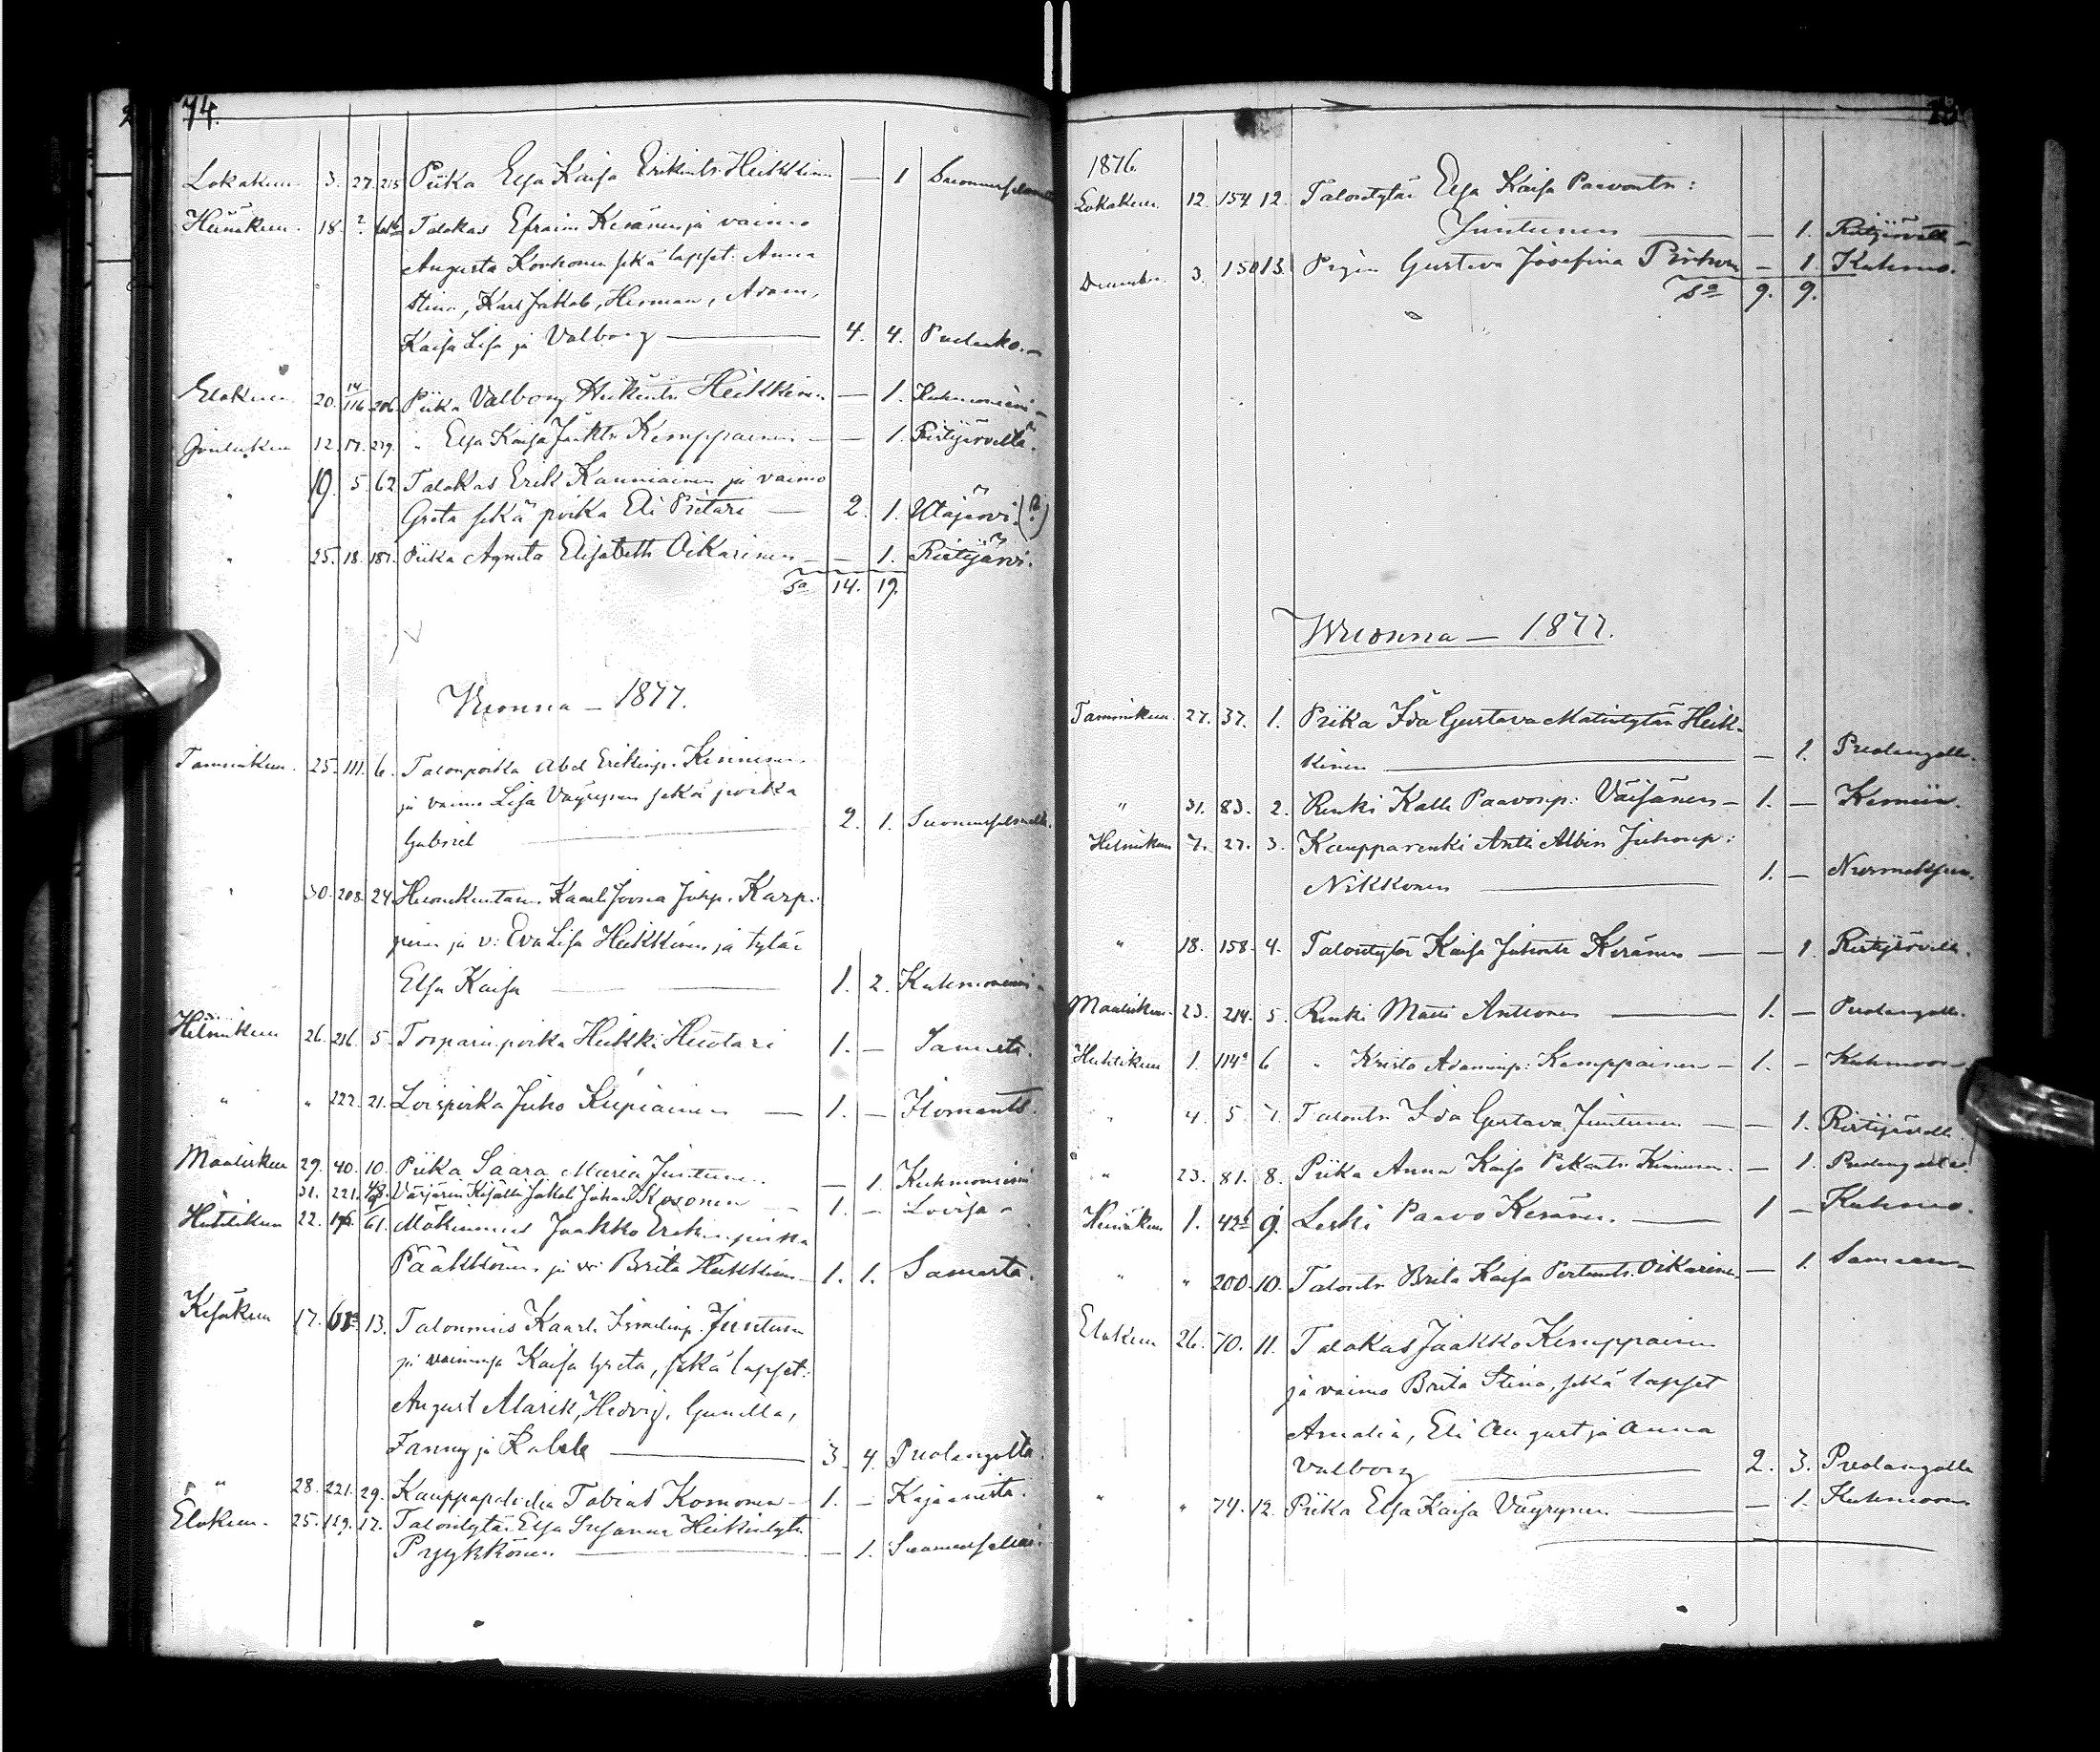 74.
Lokakuu 3. 27. 215 Piika Elsa Kaisa Erikintr. Heikkinen — 1
Heinäkuu. 18. ? Talokas Efraim Keränen ja vaimo
Augusta Korhonen sekä lapset: Anna
Stina, Karl Jakob, Herman, Adam,
Kaisa Lisa ja Valborg — 4. 4. Pudasko.
Elokuu 20. 14/116 206. Piika Valborg Heikkinen — 1. Kuhmoniemi
Joulukuu 12. 17. 279. " Elsa Kaisa Kemppainen — 1. Ristijärveltä.
" 19. 5. 62 Talokas Erik Kauniainen ja vaimo
Greta sekä poika Eli Pietari — 2. 1. Utajärvi. (?)
" 25. 18. 187. Piika Agneta Elisabeth Oikarinen — 1. Ristijärvi.
Sa 14. 19.
Wuonna — 1877.
Tammikuu. 25. 111. 6. Talonpoika Abel Erikinp. Kinnunen
ja vaimo Lisa Väyrynen sekä poika
Gabriel — 2. 1.
" 30. 208. 24. Kaarl Joona Juhp. Karp-
pinen ja v: Eva Lisa Heikkinen ja tytär
Elsa Kaisa — 1. 2. Kuhmoniemi
Helmikuu 26. 216. 5. Torparinpoika Heikki Huotari 1. —
" " 222. 21. Loispoika Juho Kupiainen — 1. — Ilomants.
Maaliskuu 29. 40. 10. Piika Saara Maria Juntunen — 1. Kuhmoniemi
31. 221. Värjärin Kisälli Jakob Johan Kosonen — 1. — Lovisa
Huhtikuu 22. 61. Mäkimies Jaakko Erikinpoika
Pääkkönen ja v: Brita Heikkinen 1. 1.
Kesäkuu 17. 13. Talonmies Kaarl Juntunen
ja vaimonsa Kaisa Greta, sekä lapset:
August Alarik, Hedvig, Gunilla,
Fanny ja — 3. 4. Puolangalta.
" " 28. 221. 29. Kauppapalvelia Tobias Komonen 1. — Kajaanista.
Elokuu. 25. 159. 17. Talontytär Elsa Susanna Heikintytr
Pyykkönen — 1.
1876.
Lokakuu 12. 154. 12. Talontytär Elsa Kaisa Paavontr:
Juntunen — — 1. Ristijärvelle
December 3. 150 13. Gustava Josefina — 1. Kuhmo.
Sa 9. 9.
Wuonna — 1877.
Tammikuu. 27. 37. 1. Piika Ida Gustava Matintytär Heik-
kinen — — 1. Puolangalle.
" 31. 83. 2. Renki Kalle Paavonp: Väisänen — 1. — Kemiin.
Helmikuu 7. 27. 3. Kaupparenki Antti Albin Juhonp:
Nikkonen — 1. —
" 18. 158. 4. Talontytär Kaisa Juhontr Keränen — — 1. Ristijärvelle.
Maaliskuu. 23. 214. 5. Renki Matti Anttonen — 1. — Puolangalle.
Huhtikuu 1. 114a 6 " Krister Adaminp: Kemppainen — 1. — Kuhmoon
" 4. 5. 7. Talontr Ida Gustava Juntunen — — 1. Ristijärvelle.
" 23. 81. 8. Piika Anna Kaisa Kinnunen. — 1. Puolangalle
Heinäkuu 1. 42b 9. Leski Paavo Keränen. — 1 — Kuhmo.
" " 200. 10. Talontr Brita Kaisa Oikarinen — 1.
Elokuu 26. 70. 11. Talokas Jaakko Kemppainen
ja vaimo Brita Stina, sekä lapset
Amalia, Eli August ja Anna
Valborg — 2. 3. Puolangalle
" " 74. 12. Piika Elsa Kaisa Väyrynen — — 1. Kuhmoon.